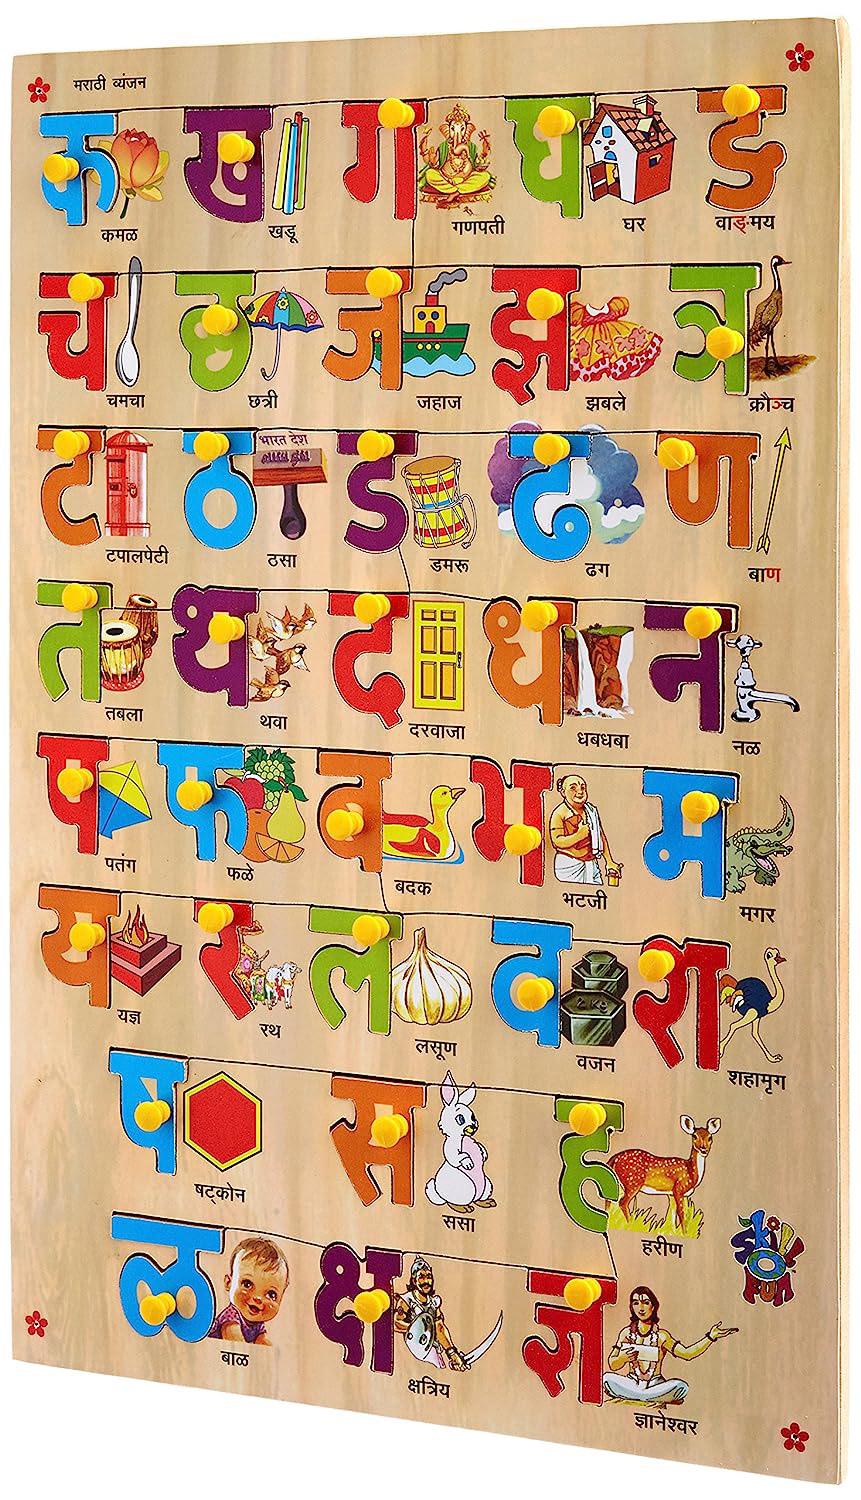 मराठी व्यंजन
क ख ग घ ङ
कमळ खडू गणपती घर वाङ्‌मय
च छ ज झ ञ
चमचा छत्री जहाज झबले क्रौञ्च
ट ठ ड ढ ण
भारत देश
टपालपेटी ठसा डमरू ढग बाण
त थ द ध न
तबला थवा दरवाजा धबधबा नळ
प फ ब भ म
पतंग फळे बदक भटजी मगर
य र ल व श
2 KG
यज्ञ रथ लसूण वजन शहामृग
ष स ह
षट्कोन ससा हरीण
Skill O Fun
ळ क्ष ज्ञ
बाळ क्षत्रिय ज्ञानेश्वर